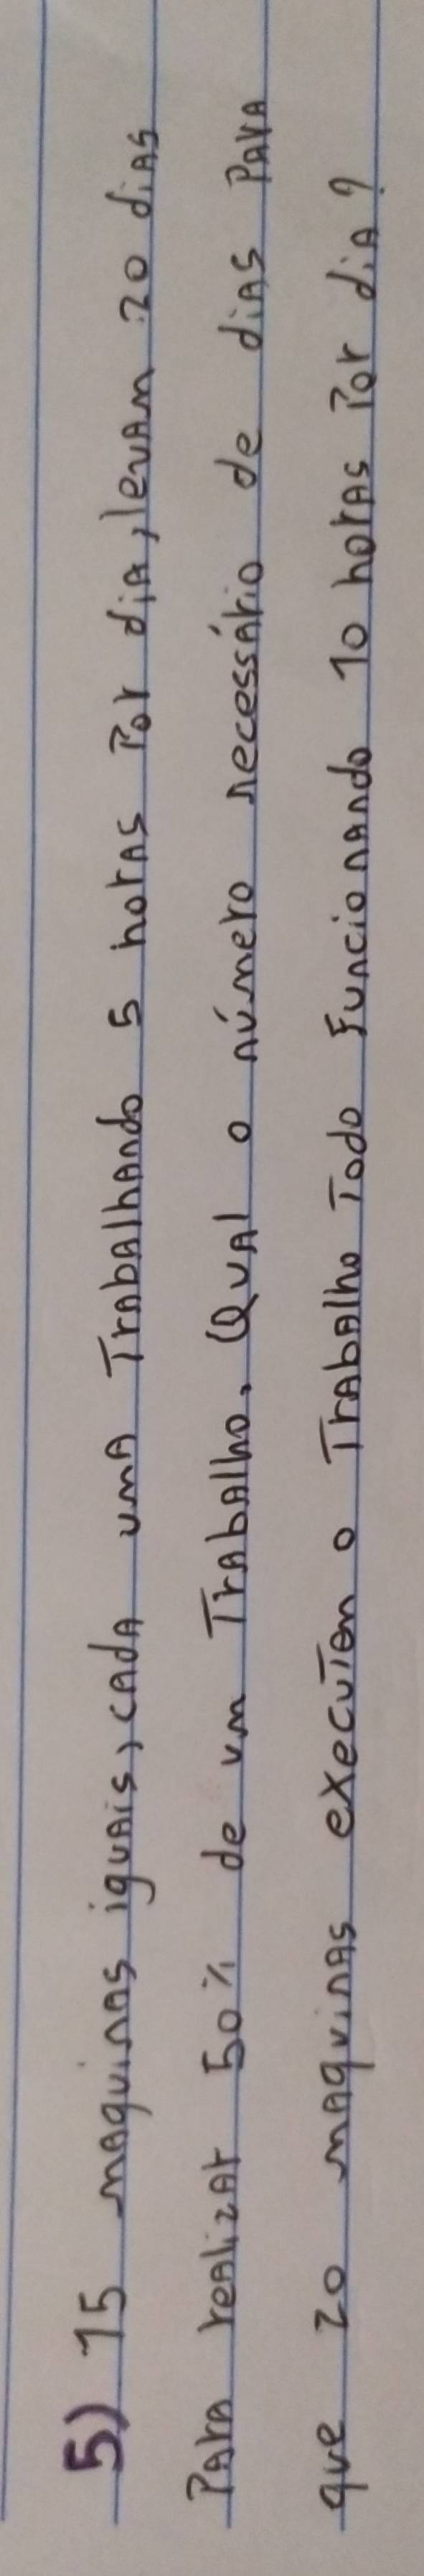 5) 15 maquinas iguais, cada uma Trabalhando 5 horas Por dia, levam 20 dias
Para realizar 50% de um Trabalho. Qual o número necessário de dias Para
que 20 maquinas executem o Trabalho Todo Funcionando 10 horas Por dia?